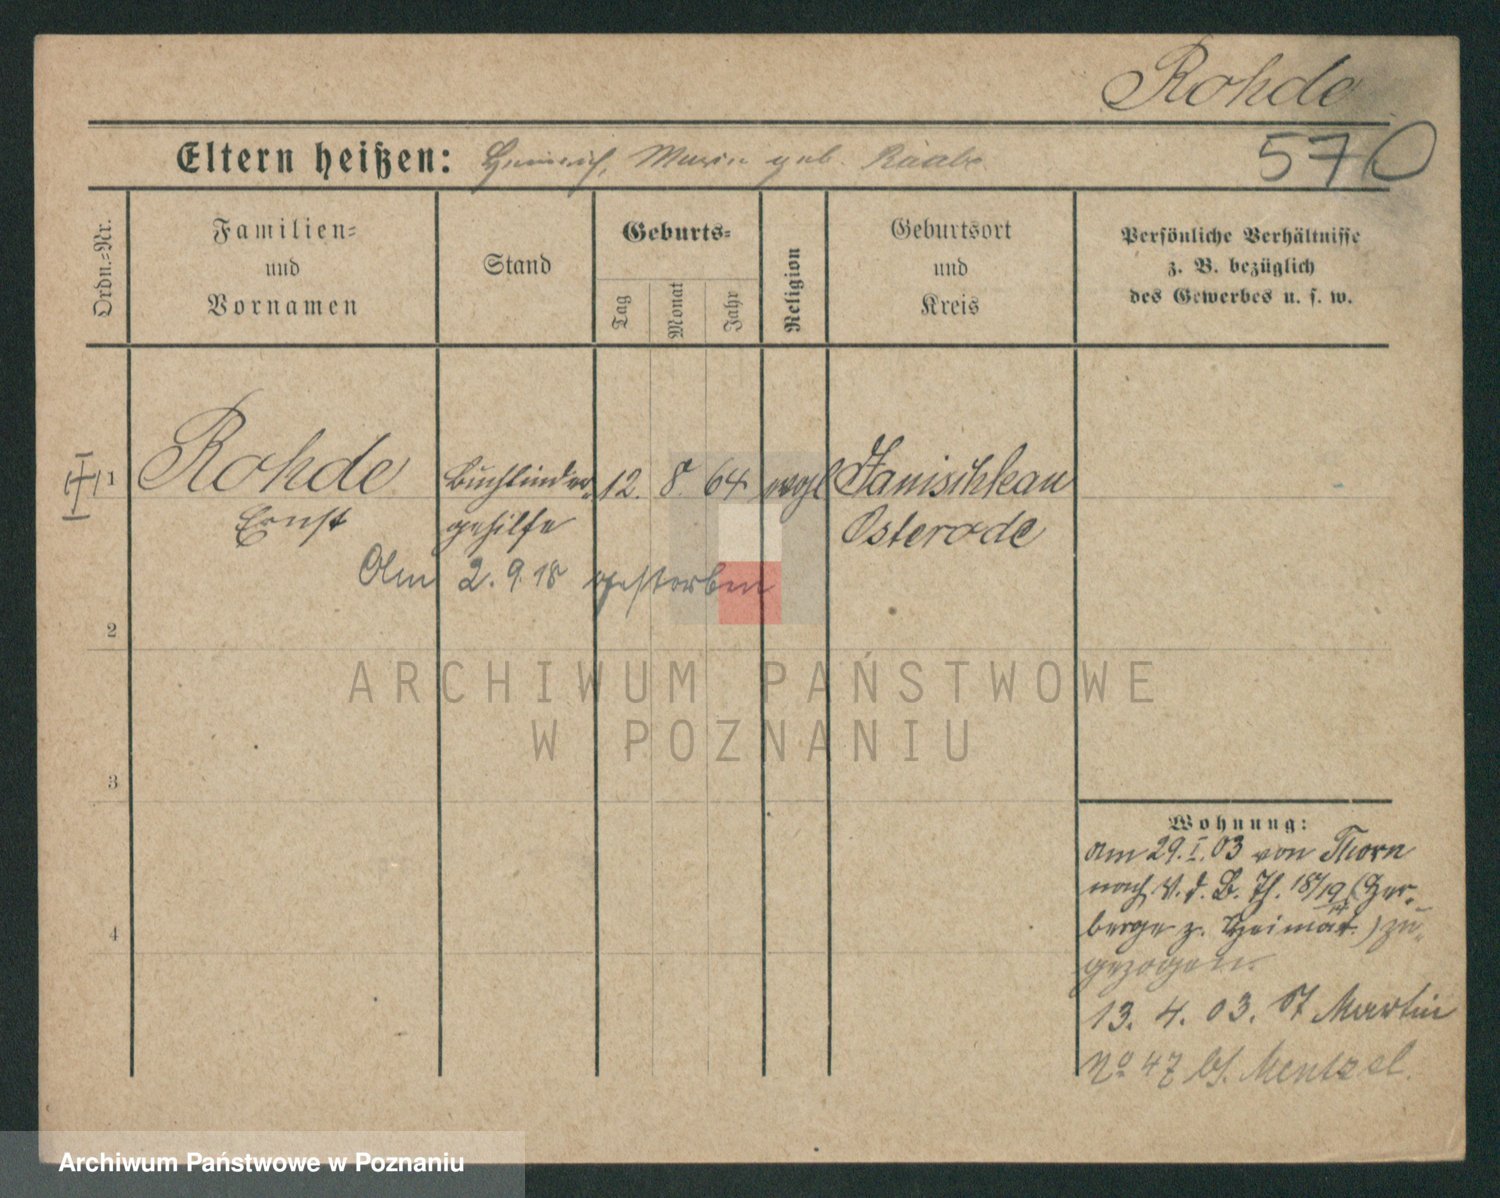 Rohde
570
Eltern heißen: Heinrich, Marie geb. Raabe
Ordn.=Nr.
Familien=
und
Vornamen
Stand
Geburts=
Tag
Monat
Jahr
Religion
Geburtsort
und
Kreis
Persönliche Verhältnisse
z. B. bezüglich
des Gewerbes u. s. w.
1
Rohde Buchbinder= 12. 8. 64 evgl
Ernst gehilfe Osterode
Am 2. 9. 18 gestorben
2
3
4
Wohnung:
am 29. I. 03 von Thorn
nach V. d. B. Th. 18/19 (Her=
berge z. Heimat.) zu=
gezogen.
13. 4. 03. St Martin
No 47 bf. Mentzel.
ARCHIWUM PAŃSTWOWE
W POZNANIU
Archiwum Państwowe w Poznaniu